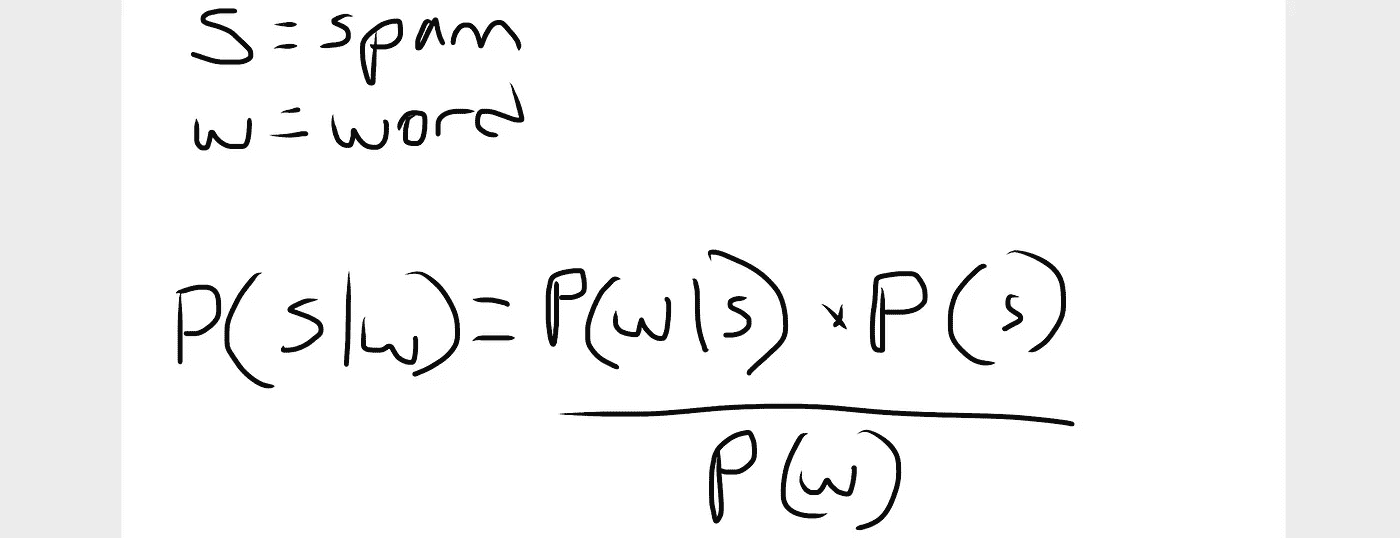 S = spam
w = word
P(s|w) = P(w|s) × P(s)
P(w)